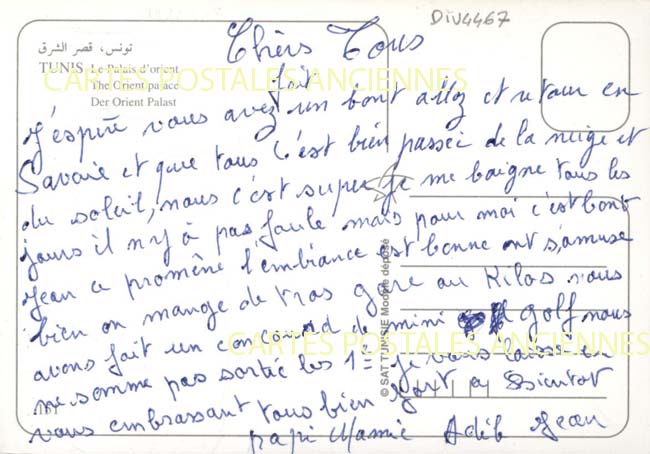 DIV4467
تونس، قصر الشرق
TUNIS Le Palais d'orient
The Orient palace
Der Orient Palast
CARTES POSTALES ANCIENNES
Chèrs Tous
J'espère vous avez fait un bont allez et retour en
Savoie et que tous c'est bien passée de la neige et
du soleil, nous c'est super je me baigne tous les
jours il n'y à pas foule mais pour moi c'est bont
Jean a promène l'embiance est bonne ont s'amuse
bien on mange de tros gare au Kilos nous
avons fait un concourd de mini golf nous
ne somme pas sortie les 1er je vous laisse en
vous embrassant tous bien fort a Bientot
papi Mamie Adèle Jean
© SAT TUNISIE Modèle déposé
CARTES POSTALES ANCIENNES